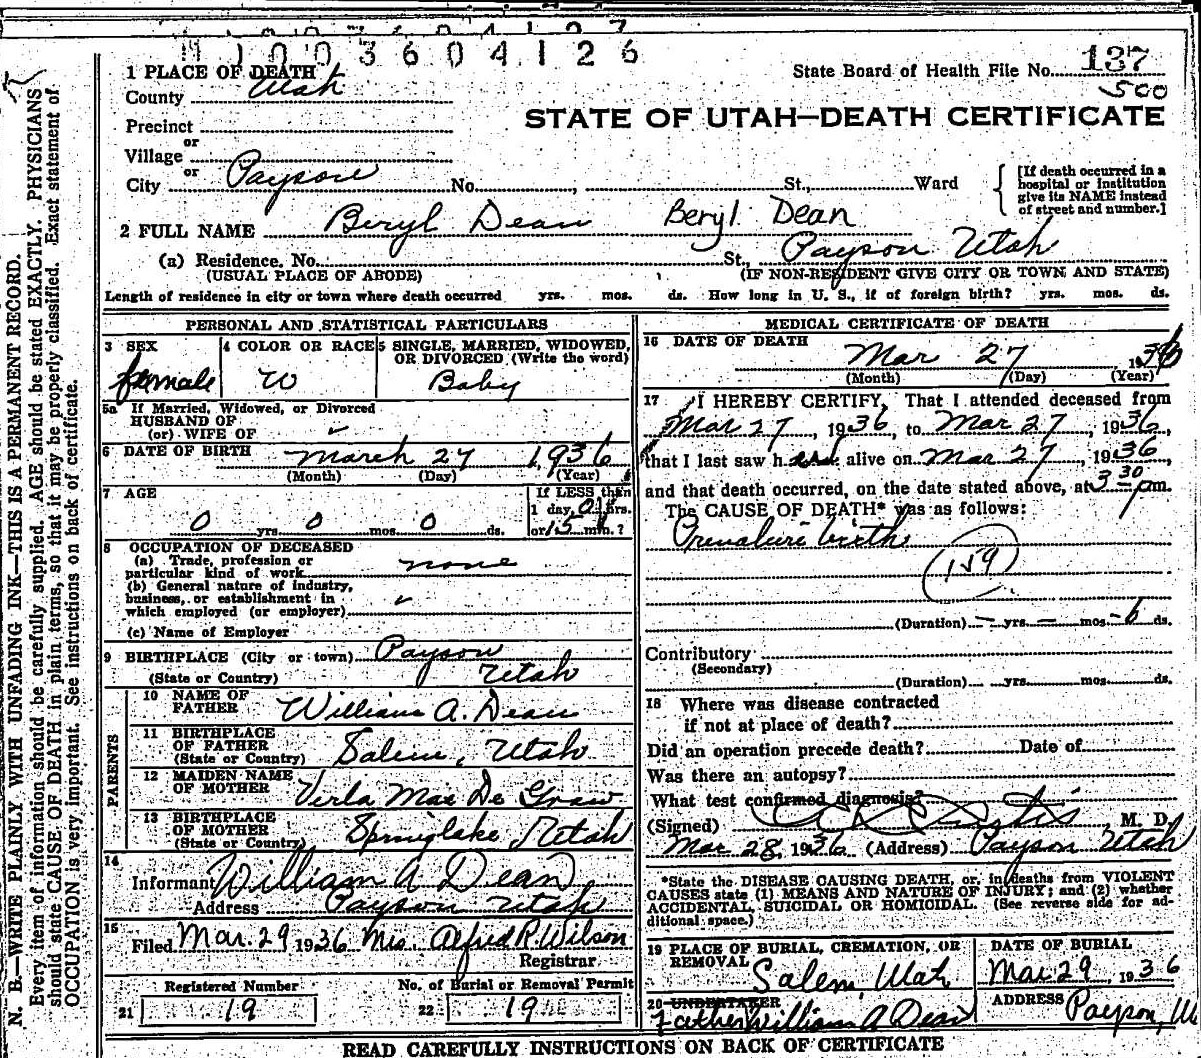 1100360 4126
1 PLACE OF DEATH
State Board of Health File No. 137
County Utah
500
STATE OF UTAH—DEATH CERTIFICATE
Precinct
or
Village
or
City Payson No. , St., Ward
[If death occurred in a hospital or institution give its NAME instead of street and number.]
2 FULL NAME Beryl Dean Beryl Dean
(a) Residence. No. St., Payson Utah
(USUAL PLACE OF ABODE) (IF NON-RESIDENT GIVE CITY OR TOWN AND STATE)
Length of residence in city or town where death occurred yrs. mos. ds. How long in U. S., if of foreign birth? yrs. mos. ds.
PERSONAL AND STATISTICAL PARTICULARS
3 SEX 4 COLOR OR RACE 5 SINGLE, MARRIED, WIDOWED, OR DIVORCED (Write the word)
female W Baby
5a If Married, Widowed, or Divorced
HUSBAND OF
(or) WIFE OF
6 DATE OF BIRTH March 27 1936
(Month) (Day) (Year)
7 AGE If LESS than
1 day, hrs.
0 yrs. 0 mos. 0 ds. or 15 min.?
8 OCCUPATION OF DECEASED
(a) Trade, profession or
particular kind of work none
(b) General nature of industry,
business, or establishment in
which employed (or employer)
(c) Name of Employer
9 BIRTHPLACE (City or town) Payson
(State or Country) Utah
PARENTS
10 NAME OF
FATHER William A. Dean
11 BIRTHPLACE
OF FATHER
(State or Country) Salem, Utah
12 MAIDEN NAME
OF MOTHER Verla Mae De Graw
13 BIRTHPLACE
OF MOTHER
(State or Country) Springlake Utah
14
Informant William A Dean
Address Payson Utah
15
Filed Mar. 29 1936 Mrs. Alfred R. Wilson
Registrar
Registered Number No. of Burial or Removal Permit
21 19 22 19
MEDICAL CERTIFICATE OF DEATH
16 DATE OF DEATH
Mar 27 1936
(Month) (Day) (Year)
17 I HEREBY CERTIFY, That I attended deceased from
Mar 27, 1936, to Mar 27, 1936,
that I last saw h alive on Mar 27, 1936,
and that death occurred, on the date stated above, at 3 30 pm.
The CAUSE OF DEATH* was as follows:
Premature birth
(159)
(Duration) — yrs. — mos. - 6 ds.
Contributory
(Secondary)
(Duration) yrs. mos. ds.
18 Where was disease contracted
if not at place of death?
Did an operation precede death? Date of
Was there an autopsy?
What test confirmed diagnosis?
(Signed) M. D.
Mar 28, 1936 (Address) Payson Utah
*State the DISEASE CAUSING DEATH, or, in deaths from VIOLENT
CAUSES state (1) MEANS AND NATURE OF INJURY; and (2) whether
ACCIDENTAL, SUICIDAL OR HOMICIDAL. (See reverse side for ad-
ditional space.)
19 PLACE OF BURIAL, CREMATION, OR DATE OF BURIAL
REMOVAL Salem, Utah Mar. 29, 1936
20 UNDERTAKER ADDRESS
Father William A Dean Payson, U
READ CAREFULLY INSTRUCTIONS ON BACK OF CERTIFICATE
N. B.—WRITE PLAINLY WITH UNFADING INK—THIS IS A PERMANENT RECORD.
Every item of information should be carefully supplied. AGE should be stated EXACTLY. PHYSICIANS
should state CAUSE OF DEATH in plain terms, so that it may be properly classified. Exact statement of
OCCUPATION is very important. See instructions on back of certificate.